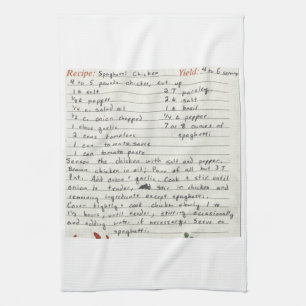 Recipe: Spaghetti Chicken Yield: 4 to 6 servings
4 to 5 pounds chicken, cut up
1 t salt 2 T parsley
1/4 t pepper 2 t salt
1/4 c. salad oil 1 t basil
1/2 c. onion chopped 1/4 t pepper
1 clove garlic 7 or 8 ounces of
2 cans tomatoes spaghetti
1 can tomato sauce
1 can tomato paste
Season the chicken with salt and pepper.
Brown chicken in oil; Pour off all but 3 T
Fat. Add onion + garlic. Cook + stir until
onion is tender. Stir in chicken and
remaining ingredients except spaghetti.
Cover tightly + cook chicken slowly 1 to
1 1/2 hours, until tender, stirring occasionally
and adding water if necessary. Serve on
spaghetti.